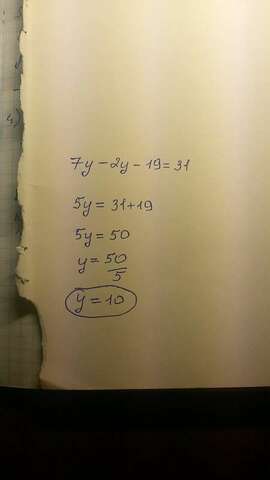 7y - 2y - 19 = 31
5y = 31 + 19
5y = 50
y = 50/5
y = 10